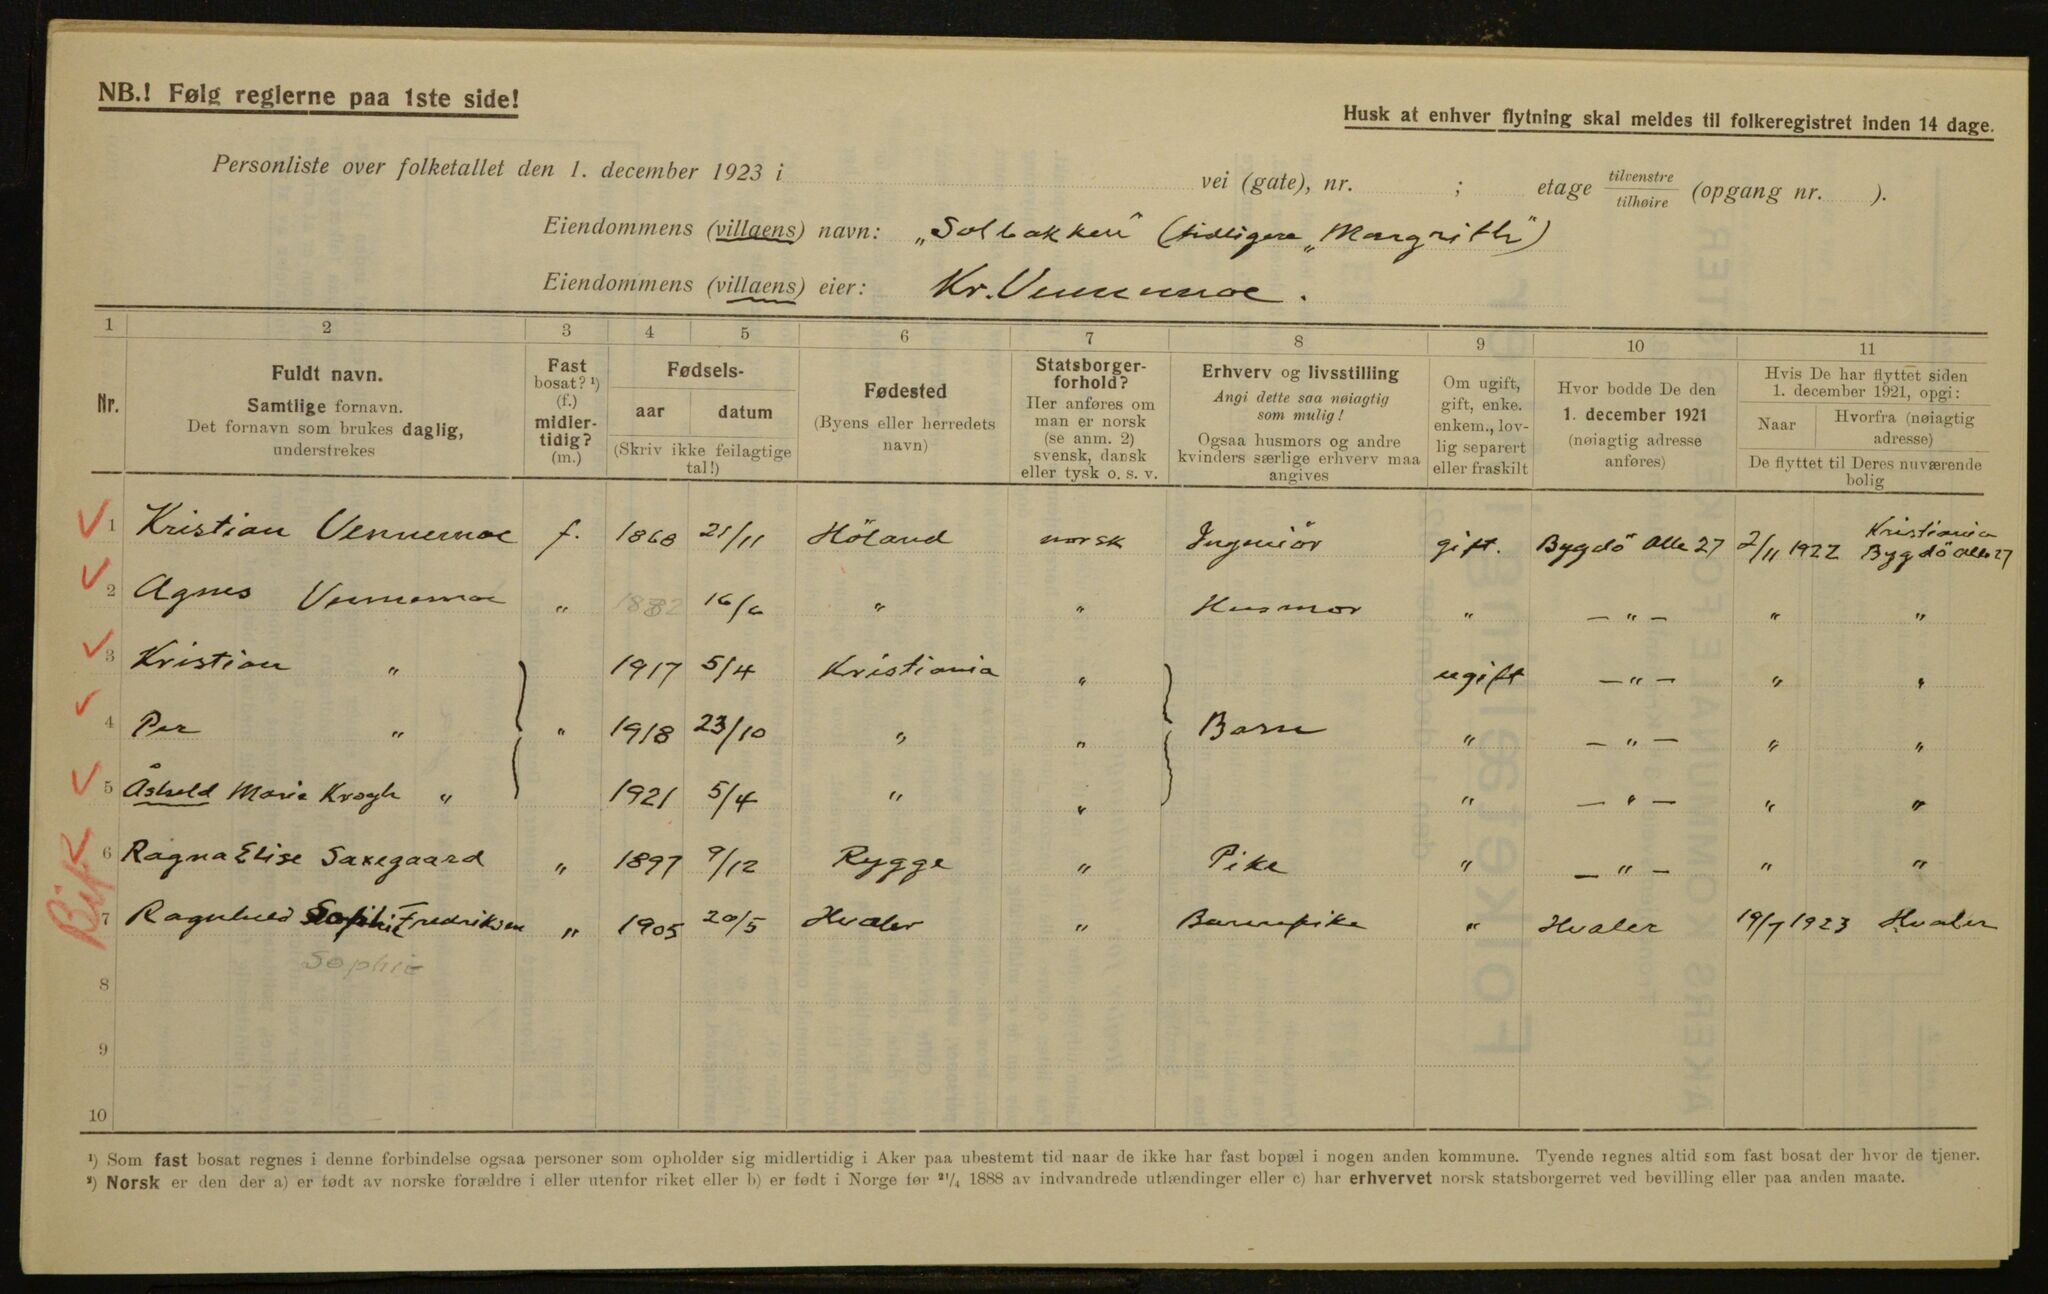 NB.! Følg reglerne paa 1ste side!
Husk at enhver flytning skal meldes til folkeregistret inden 14 dage.
Personliste over folketallet den 1. december 1923 i vei (gate), nr. ; etage tilvenstre / tilhøire (opgang nr. ).
Eiendommens (villaens) navn: „Solbakken" (tidligere „Margrith")
Eiendommens (villaens) eier: Kr. Vennemoe.
1 2 3 4 5 6 7 8 9 10 11
Nr.
Fuldt navn.
Samtlige fornavn.
Det fornavn som brukes daglig,
understrekes
Fast
bosat? ¹)
(f.)
midler-
tidig?
(m.)
Fødsels-
aar datum
(Skriv ikke feilagtige
tal!)
Fødested
(Byens eller herredets
navn)
Statsborger-
forhold?
Her anføres om
man er norsk
(se anm. 2)
svensk, dansk
eller tysk o. s. v.
Erhverv og livsstilling
Angi dette saa nøiagtig
som mulig!
Ogsaa husmors og andre
kvinders særlige erhverv maa
angives
Om ugift,
gift, enke.
enkem., lov-
lig separert
eller fraskilt
Hvor bodde De den
1. december 1921
(nøiagtig adresse
anføres)
Hvis De har flyttet siden
1. december 1921, opgi:
Naar Hvorfra (nøiagtig
adresse)
De flyttet til Deres nuværende
bolig
1 Kristian Vennemoe f. 1868 21/11 Höland norsk Ingeniör gift. Bygdö Alle 27 2/11 1922 Kristiania Bygdö Alle 27
2 Agnes Vennemoe „ 1882 16/6 „ „ Husmor „ — „ — „ „
3 Kristian „ 1917 5/4 Kristiania „ ugift — „ — „ „
4 Per „ „ 1918 23/10 „ „ Barn „ — „ — „ „
5 Åshild Marie Krogh „ 1921 5/4 „ „ „ — „ — „ „
6 Ragna Elise Saxegaard „ 1897 9/12 Rygge „ Pike „ — „ — „ „
7 Ragnhild Sophie Fredriksen „ 1905 20/5 Hvaler „ Barnepike „ Hvaler 19/9 1923 Hvaler
Sophie
8
9
10
¹) Som fast bosat regnes i denne forbindelse ogsaa personer som opholder sig midlertidig i Aker paa ubestemt tid naar de ikke har fast bopæl i nogen anden kommune. Tyende regnes altid som fast bosat der hvor de tjener.
²) Norsk er den der a) er født av norske forældre i eller utenfor riket eller b) er født i Norge før 21/4 1888 av indvandrede utlændinger eller c) har erhvervet norsk statsborgerret ved bevilling eller paa anden maate.